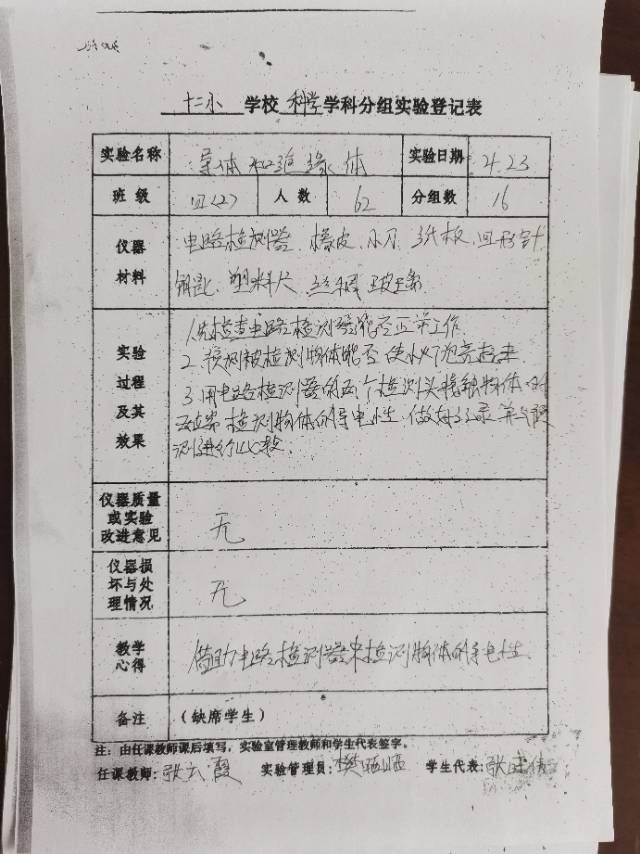 十二小 学校 科学 学科分组实验登记表
实验名称 导体和绝缘体 实验日期 4.23
班级 四(2) 人数 62 分组数 16
仪器材料 电路检测器、橡皮、小刀、纸板、回形针
钥匙、塑料尺、丝绸
实验过程及其效果 1.先检查电路检测器能否正常工作.
2.预测被检测物体能否使小灯泡亮起来.
3.用电路检测器的两个检测头接触物体的
两端 检测物体的导电性 做好记录 并与预
测进行比较.
仪器质量或实验改进意见 无
仪器损坏与处理情况 无
教学心得 借助电路检测器来检测物体的导电性.
备注 (缺席学生)
注：由任课教师课后填写，实验室管理教师和学生代表签字。
任课教师：张云霞 实验管理员：樊 学生代表：张